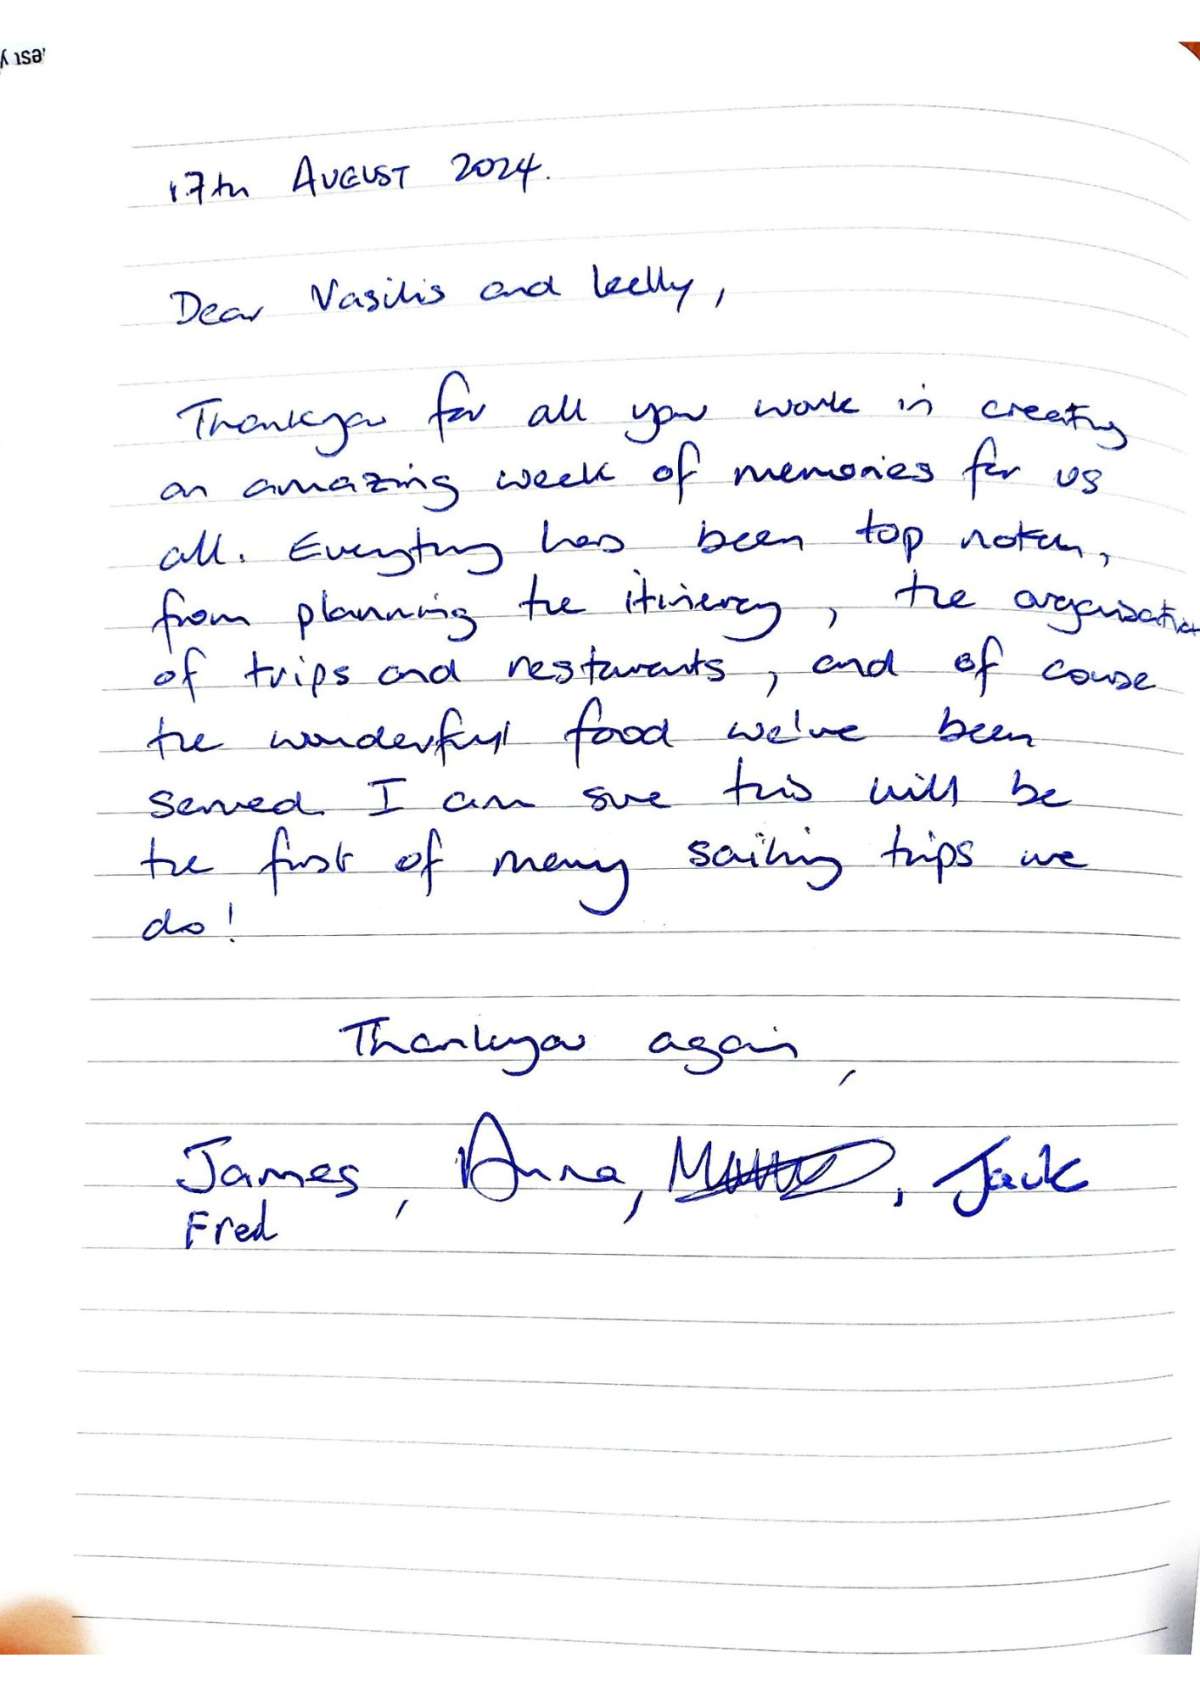 17th AUGUST 2024.
Dear Vasilis and kelly,
Thankyou for all your work in creating
an amazing week of memories for us
all. Everything has been top notch,
from planning the itinerary, the organisation
of trips and restaurants, and of course
the wonderful food we've been
served. I am sure this will be
the first of many sailing trips we
do!
Thankyou again,
James, Anna, , Jack
Fred